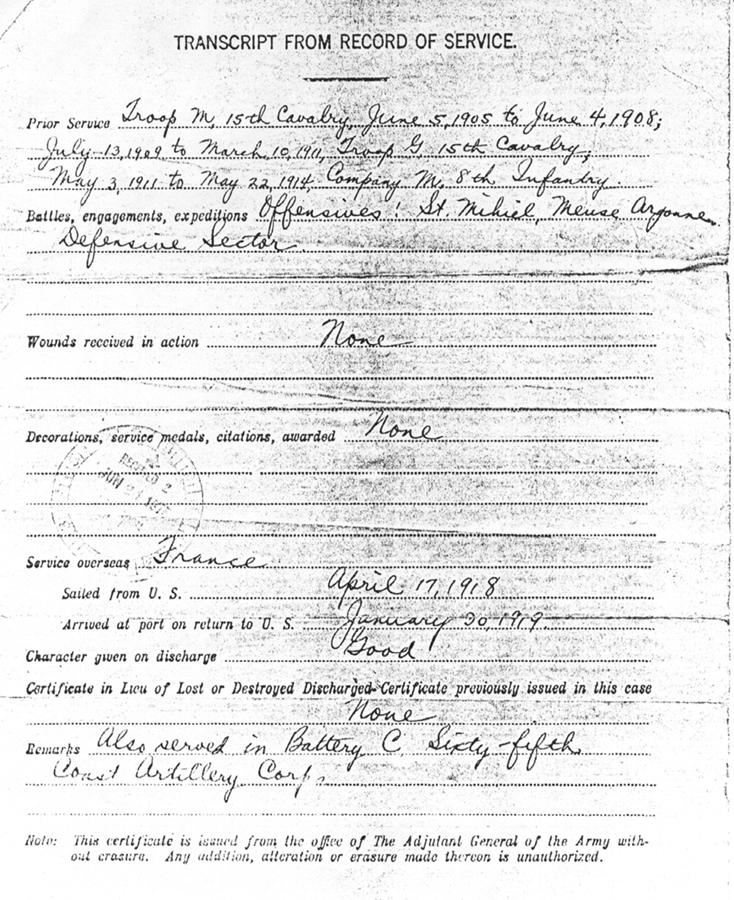 TRANSCRIPT FROM RECORD OF SERVICE.
Prior Service Troop M, 15th Cavalry, June 5, 1905 to June 4, 1908;
July 13, 1909 to March 10, 1911, Troop G 15th Cavalry;
May 3, 1911 to May 22, 1914, Company M, 8th Infantry.
Battles, engagements, expeditions Offensives: St. Mihiel, Meuse Argonne
Defensive Sector
Wounds received in action None
Decorations, service medals, citations, awarded None
RECEIVED
JUN
Service overseas France
Sailed from U. S. April 17, 1918
Arrived at port on return to U. S. January 30, 1919
Character given on discharge Good
Certificate in Lieu of Lost or Destroyed Discharged Certificate previously issued in this case
None
Remarks Also served in Battery C Sixty-fifth
Coast Artillery Corps
Note: This certificate is issued from the office of The Adjutant General of the Army with-
out erasure. Any addition, alteration or erasure made thereon is unauthorized.